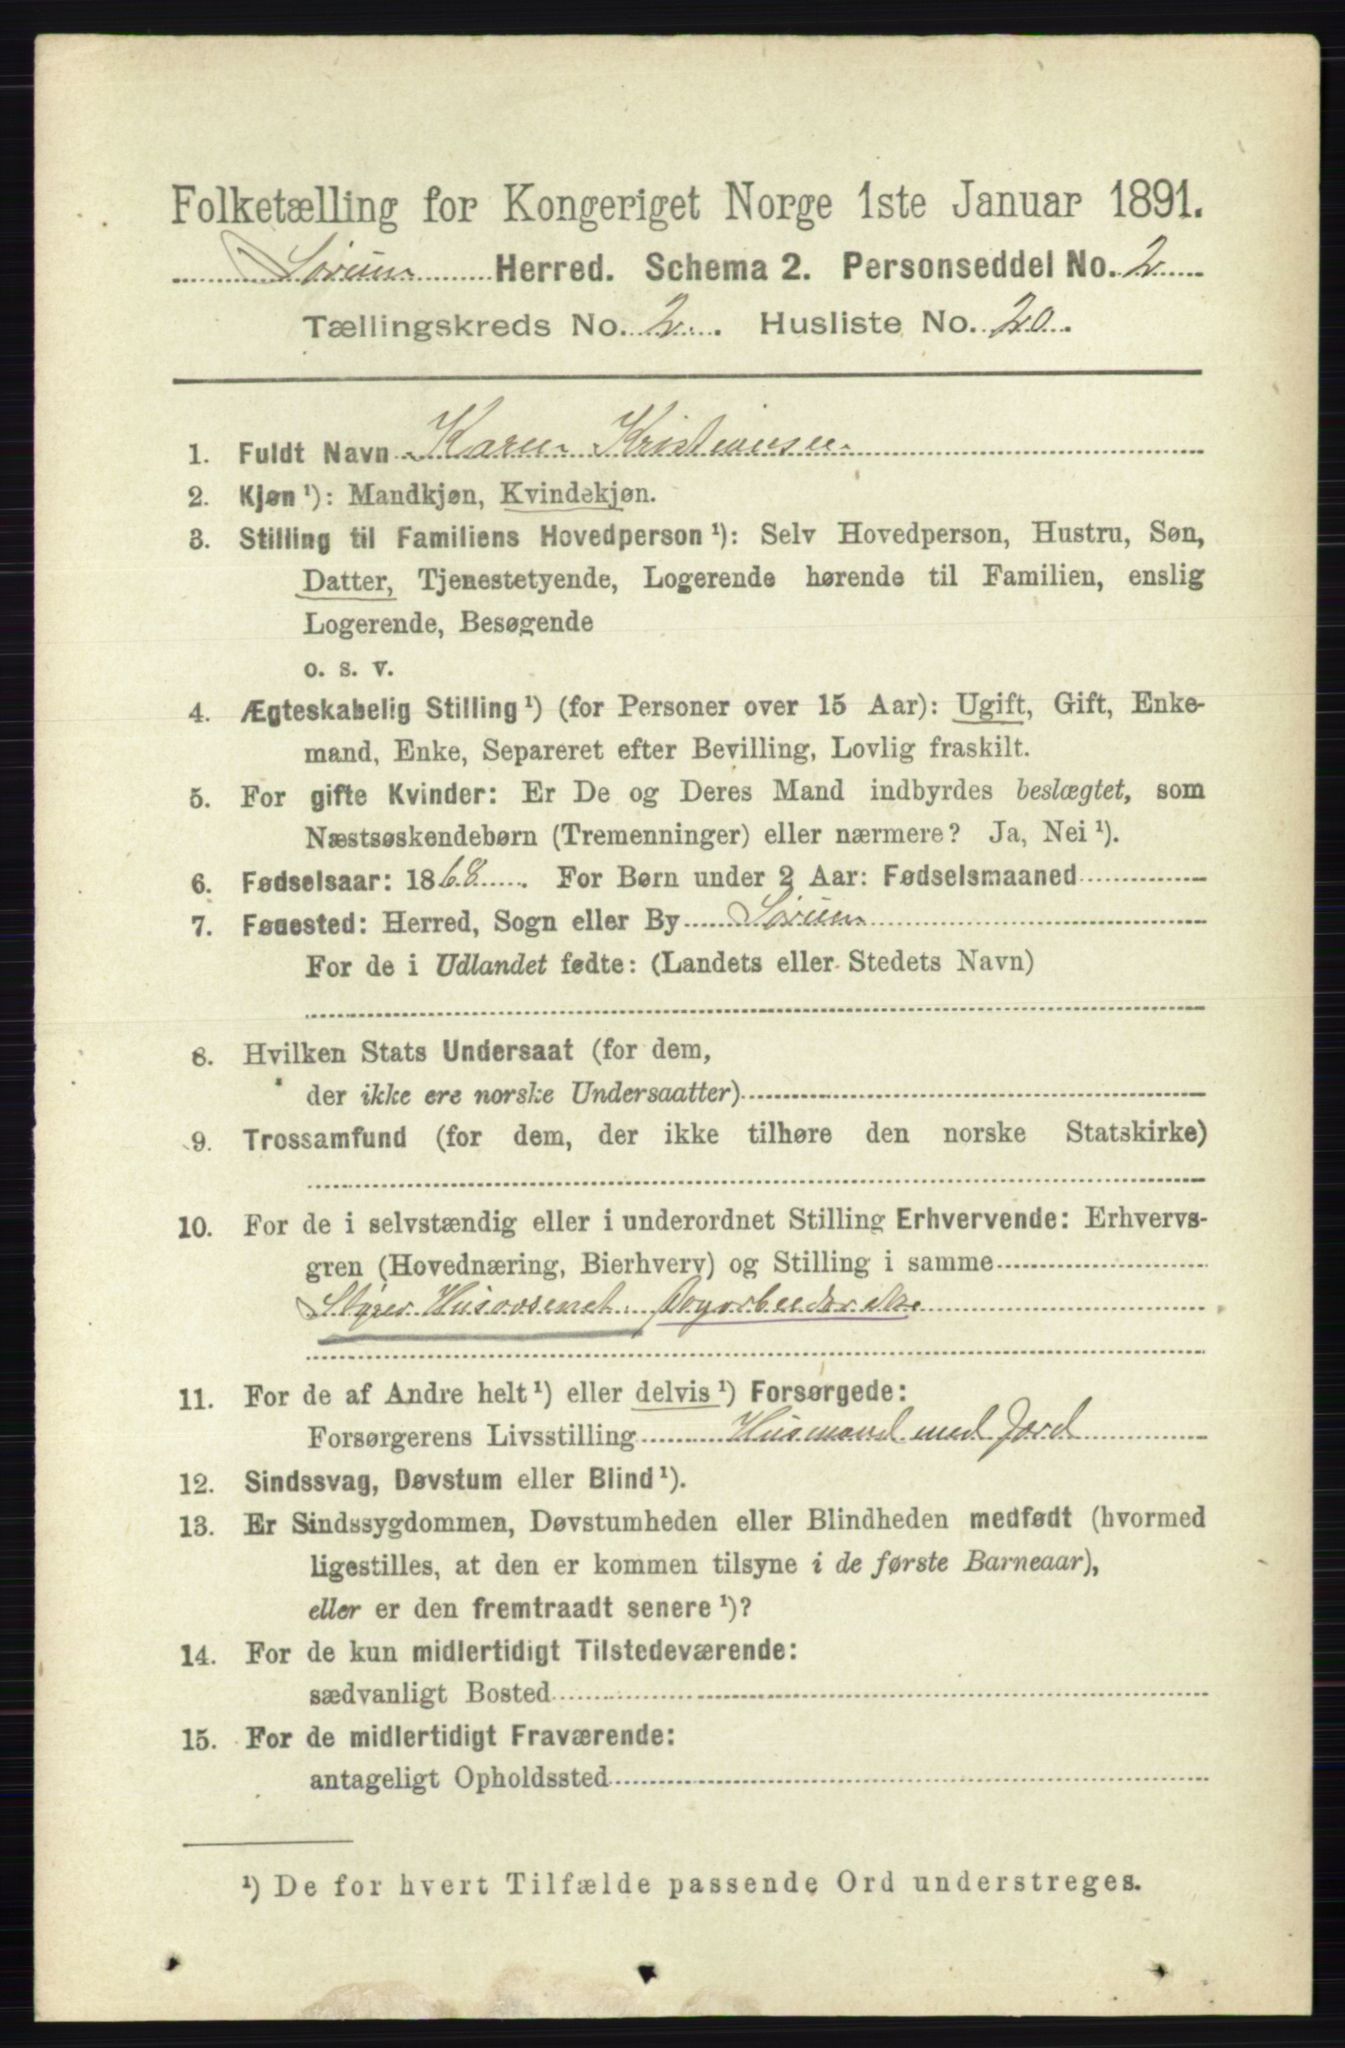 Folketælling for Kongeriget Norge 1ste Januar 1891.
Sørum Herred. Schema 2. Personseddel No. 2
Tællingskreds No. 2. Husliste No. 20.
1. Fuldt Navn Karen Kristiansen
2. Kjøn ¹): Mandkjøn, Kvindekjøn.
3. Stilling til Familiens Hovedperson ¹): Selv Hovedperson, Hustru, Søn,
Datter, Tjenestetyende, Logerende hørende til Familien, enslig
Logerende, Besøgende
o. s. v.
4. Ægteskabelig Stilling ¹) (for Personer over 15 Aar): Ugift, Gift, Enke-
mand, Enke, Separeret efter Bevilling, Lovlig fraskilt.
5. For gifte Kvinder: Er De og Deres Mand indbyrdes beslægtet, som
Næstsøskendebørn (Tremenninger) eller nærmere? Ja, Nei ¹).
6. Fødselsaar: 1868. For Børn under 2 Aar: Fødselsmaaned
7. Føuested: Herred, Sogn eller By Sørum
For de i Udlandet fødte: (Landets eller Stedets Navn)
8. Hvilken Stats Undersaat (for dem,
der ikke ere norske Undersaatter)
9. Trossamfund (for dem, der ikke tilhøre den norske Statskirke)
10. For de i selvstændig eller i underordnet Stilling Erhvervende: Erhvervs-
gren (Hovednæring, Bierhverv) og Stilling i samme
Styrer Husvæsenet. Dagarbeiderske
11. For de af Andre helt ¹) eller delvis ¹) Forsørgede:
Forsørgerens Livsstilling Husmand med Jord
12. Sindssvag, Døvstum eller Blind ¹).
13. Er Sindssygdommen, Døvstumheden eller Blindheden medfødt (hvormed
ligestilles, at den er kommen tilsyne i de første Barneaar),
eller er den fremtraadt senere ¹)?
14. For de kun midlertidigt Tilstedeværende:
sædvanligt Bosted
15. For de midlertidigt Fraværende:
antageligt Opholdssted
¹) De for hvert Tilfælde passende Ord understreges.